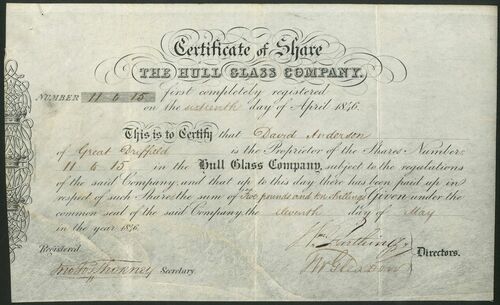 Certificate of Share
THE HULL GLASS COMPANY.
NUMBER 11 to 15 first completely registered
on the sixteenth day of April 1846.
This is to Certify that David Anderson
of Great Driffield is the Proprietor of the Shares Number:
11 to 15 in the Hull Glass Company, subject to the regulations
of the said Company; and that up to this day there has been paid up in
respect of such Shares, the sum of Two pounds and ten shillings Given under the
common seal of the said Company, the eleventh day of May
in the year 1846.
Registered.
Secretary.
Directors.